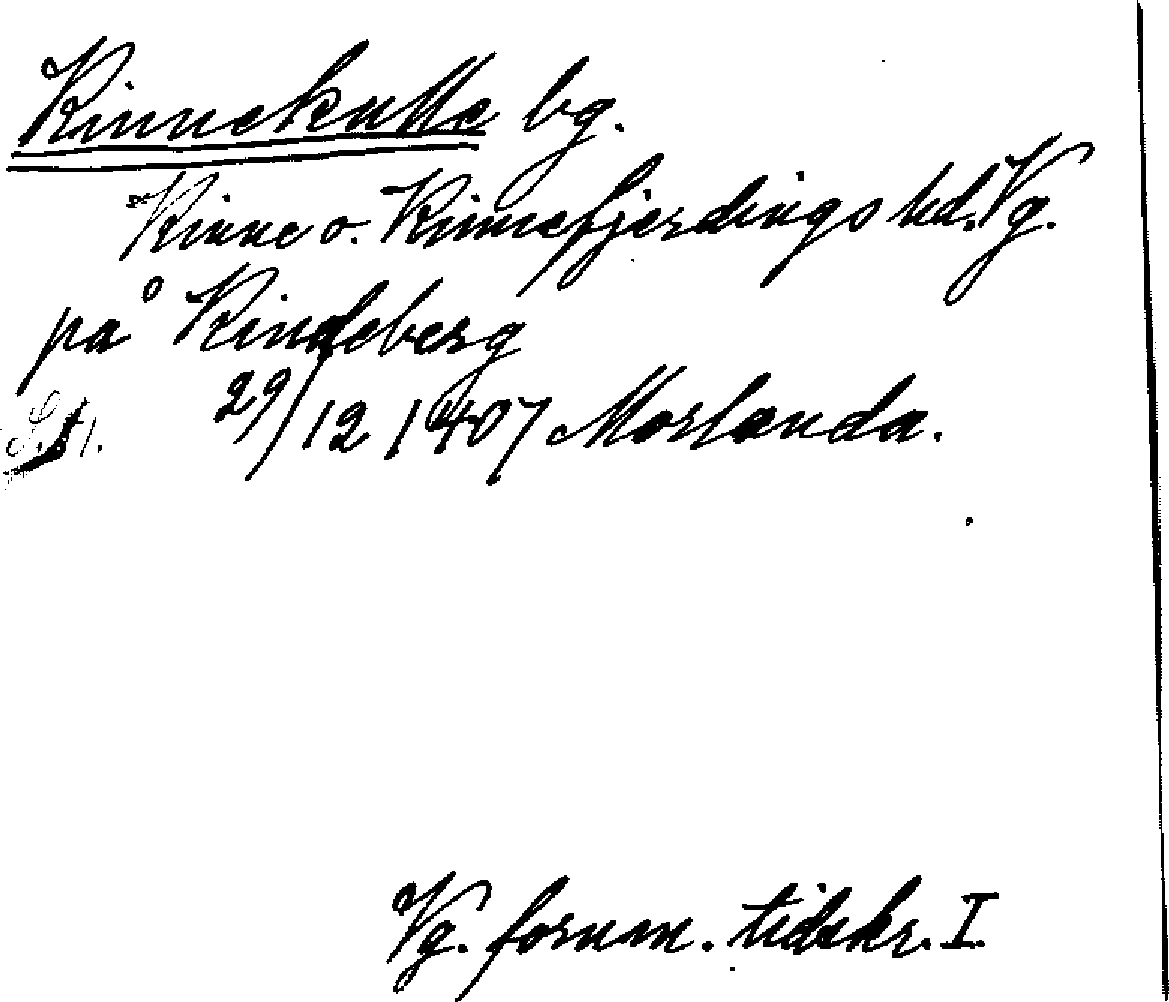 Kinnekulle bg.
Kinne o. Kinnefjerdings hd. Vg.
på Kindeberg
29/12 1407 Morlanda.
Vg. fornm. tidskr. I.